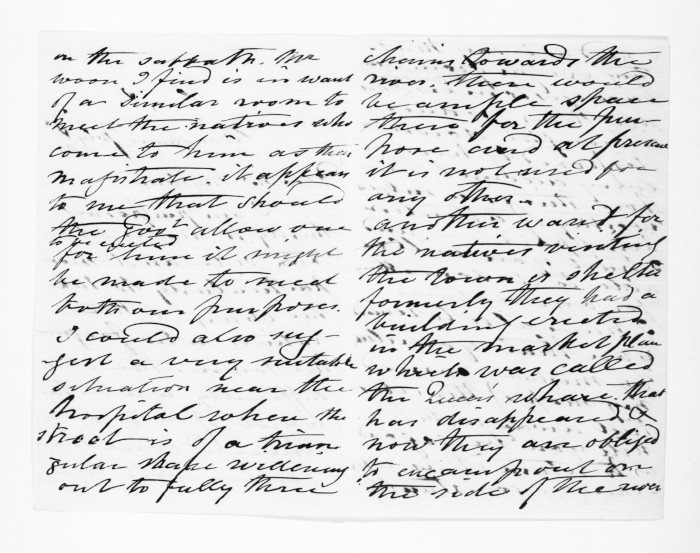 on the sabbath. Mr
woon I find is in want
of a similar room to
meet the natives who
come to him as their
magistrate. it appears
to me that should
the Govt allow one
to be erected
for him it might
be made to meet
both our purposes.
I could also sug-
gest a very suitable
situation near the
hospital where the
street is of a trian
gular shape widening
out to fully three
chains towards the
river. there would
be ample space
there for the pur
pose and at present
it is not used for
any other.
another want for
the natives visiting
the town is shelter
formerly they had a
building erected
in the market place
which was called
the Queen's whare. that
has disappeared &
now they are obliged
to encamp out on
the side of the river